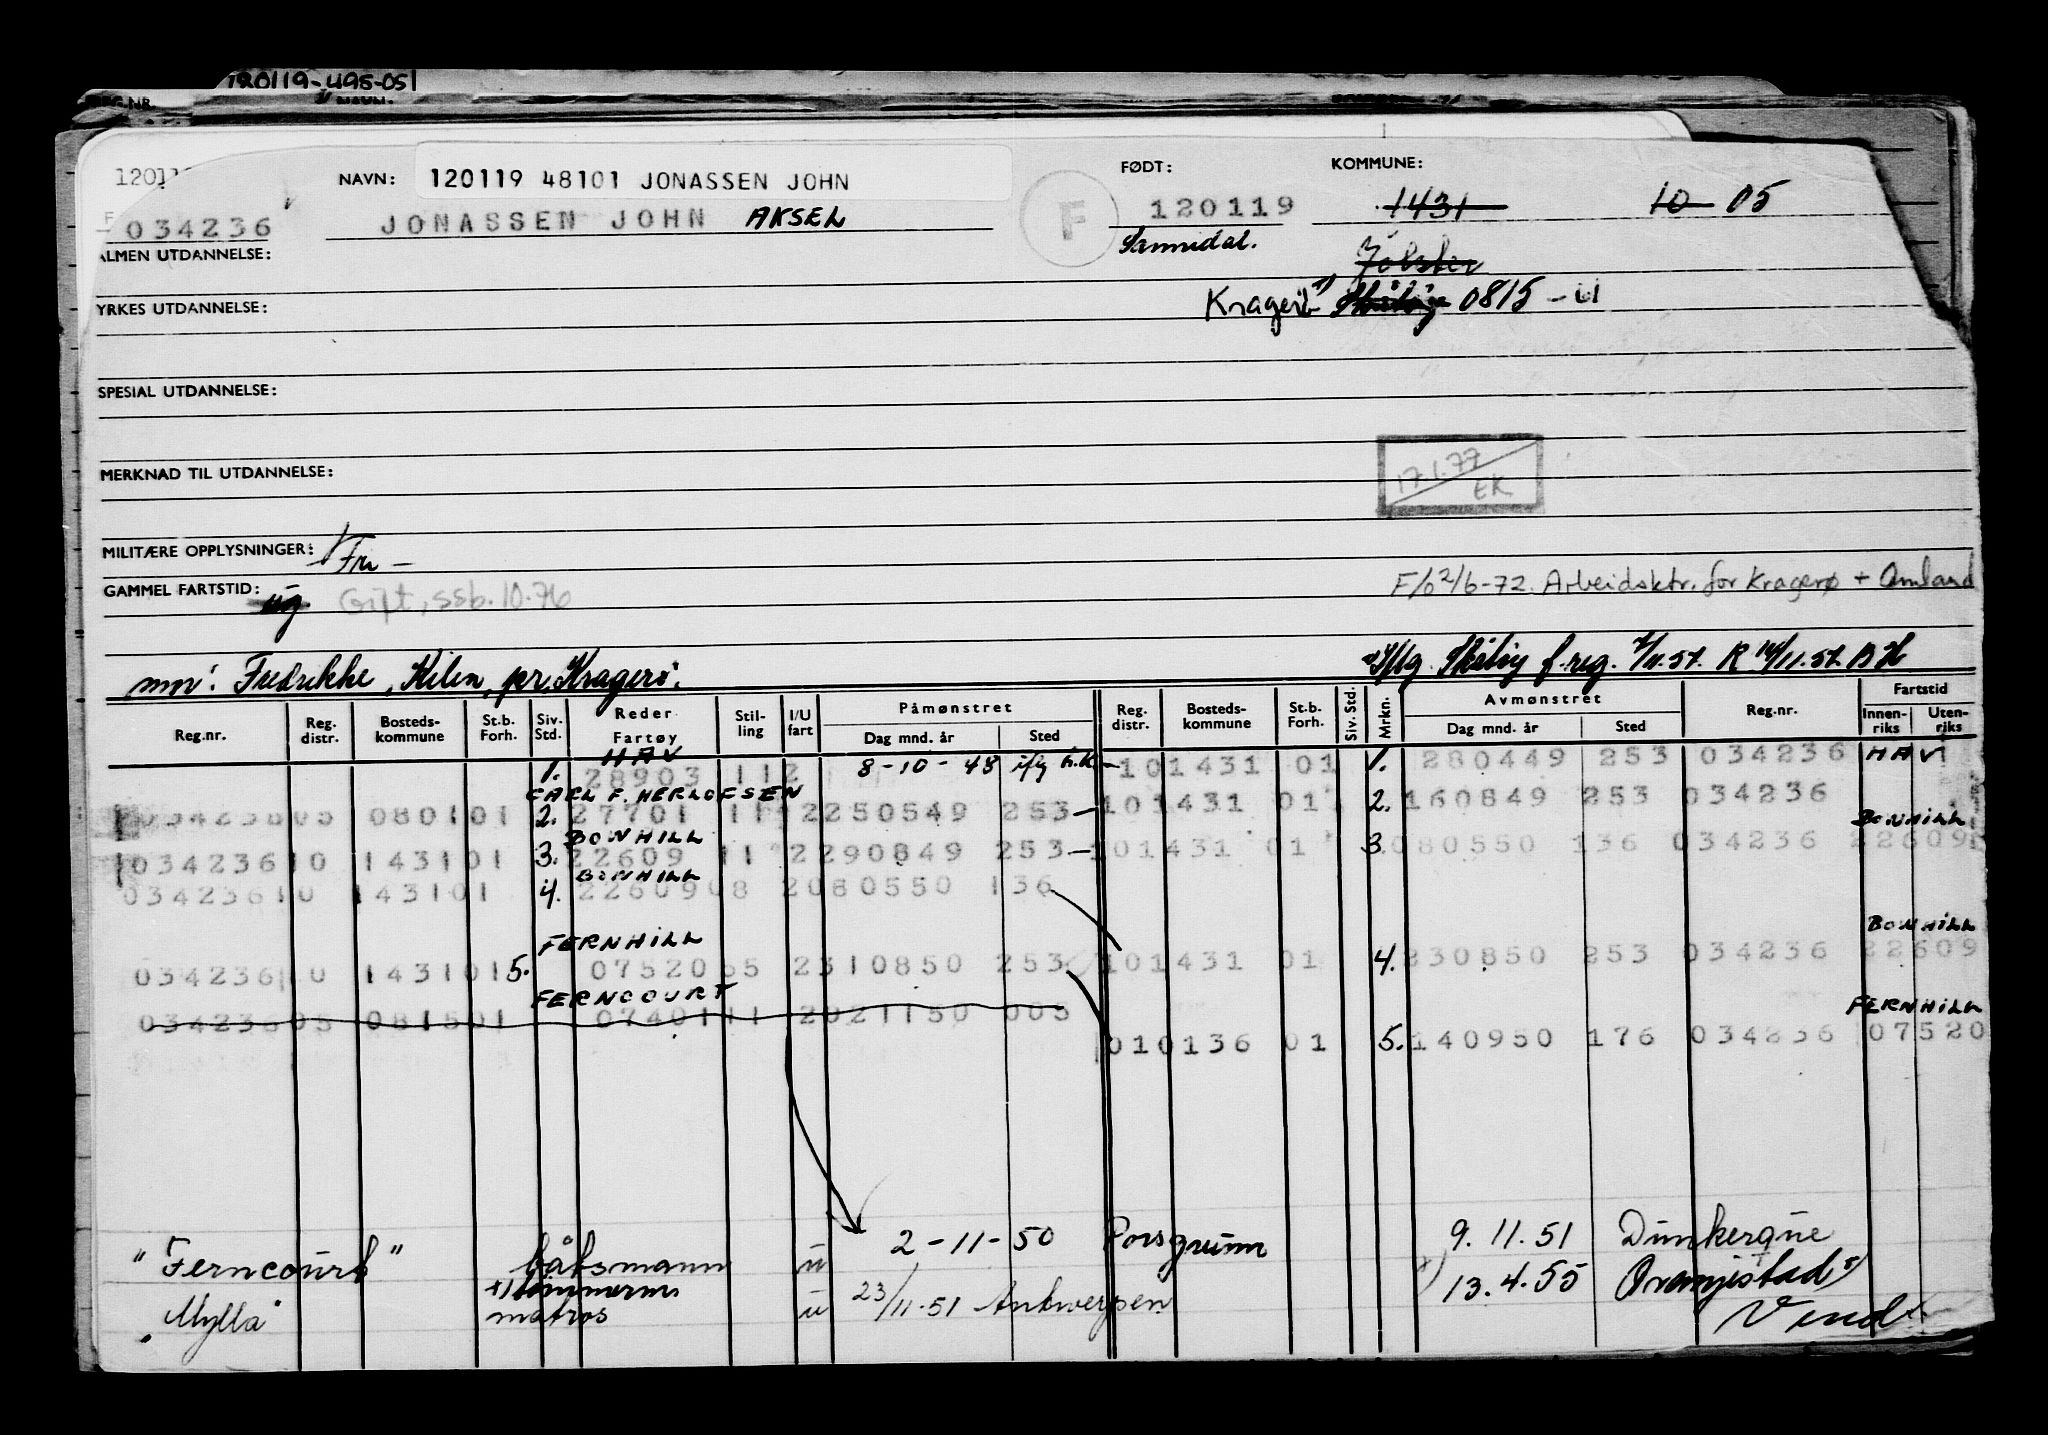 120119-495-051
REG.NR. NAVN:
12011 NAVN: 120119 48101 JONASSEN JOHN FØDT: KOMMUNE:
034236 JONASSEN JOHN AKSEL F 120119 1431 10 05
Sannidal.
ALMEN UTDANNELSE: Jölster
Kragerö 0815
YRKES UTDANNELSE:
SPESIAL UTDANNELSE:
MERKNAD TIL UTDANNELSE:
17.1.77
EK
MILITÆRE OPPLYSNINGER:
GAMMEL FARTSTID: ug. Gift, ssb. 10.76 F/62/6-72. Arbeidsktr. for Kragerø +
mor: Fredrikke, Kilen, pr. Kragerö. Skåtöy f.reg. 7/11.57. R 14/11.57. BH
Reg.nr. Reg. distr. Bostedskommune St.b. Forh. Siv. Std. Reder Fartøy Stilling I/U fart Påmønstret Dag mnd. år Sted Reg. distr. Bostedskommune St.b. Forh. Siv. Std. Mrkn. Avmønstret Dag mnd. år Sted Reg.nr. Fartstid Innenriks Utenriks
HAV
1. 28903 112 8-10-48 101431 01 1. 280449 253 034236 HAV
CARL F. HERLOFSEN
034236 05 080101 2. 27701 11 2250549 253 101431 01 2. 160849 253 034236
BONHILL BONHILL
034236 10 143101 3. 22609 11 2290849 253 101431 01 3. 080550 136 034236 22609
BONHILL
034236 10 143101 4. 22609 08 2080550 136
FERNHILL BONHILL
034236 10 143101 5. 07520 55 2310850 253 101431 01 4. 230850 253 034236 22609
FERNCOURT FERNHILL
034236 05 081501 07401 11 2021150 005
010136 01 5. 140950 176 034236 07520
"Ferncourt" båtsmann u 2-11-50 Porsgrunn 9.11.51 Dunkerque
x) tömmerm
"Mylla" matros u 23/11.51 Antwerpen x) 13.4.55 Oranjestad
Vend